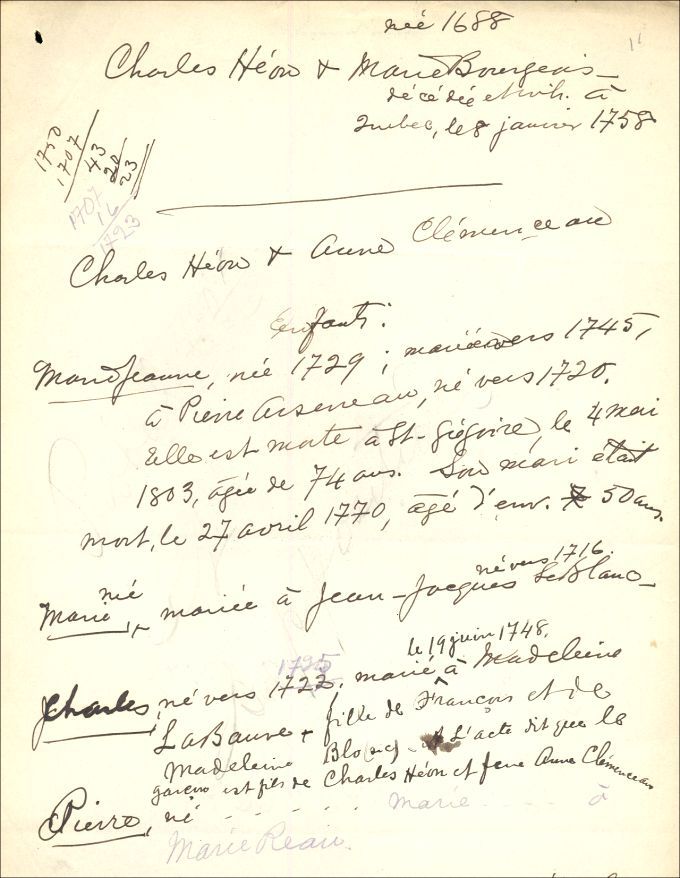 née 1688
11
Charles Héon & Marie Bourgeois -
décédée et inh. à
Quebec, le 8 janvier 1758
1750
1707
43
20
23
1707
16
1723
Charles Héon & Anne Clémenceau
Enfants:
Marie Jeanne, née 1729 ; mariée vers 1745,
à Pierre Arseneau, né vers 1720.
Elle est morte à St-Grégoire, le 4 mai
1803, âgée de 74 ans. Son mari était
mort, le 27 avril 1770, âgé d'env. 50 ans.
née né vers 1716.
Marie, mariée à Jean-Jacques LeBlanc -
le 19 juin 1748.
1725
Charles, né vers 1723; marié à Madeleine
LaBauve & fille de François et de
Madeleine Blo(nc) - L'acte dit que le
garçon est fils de Charles Héon et feue Anne Clémenceau
Pierre, né - - - - - marié - - - à
Marie Reau.